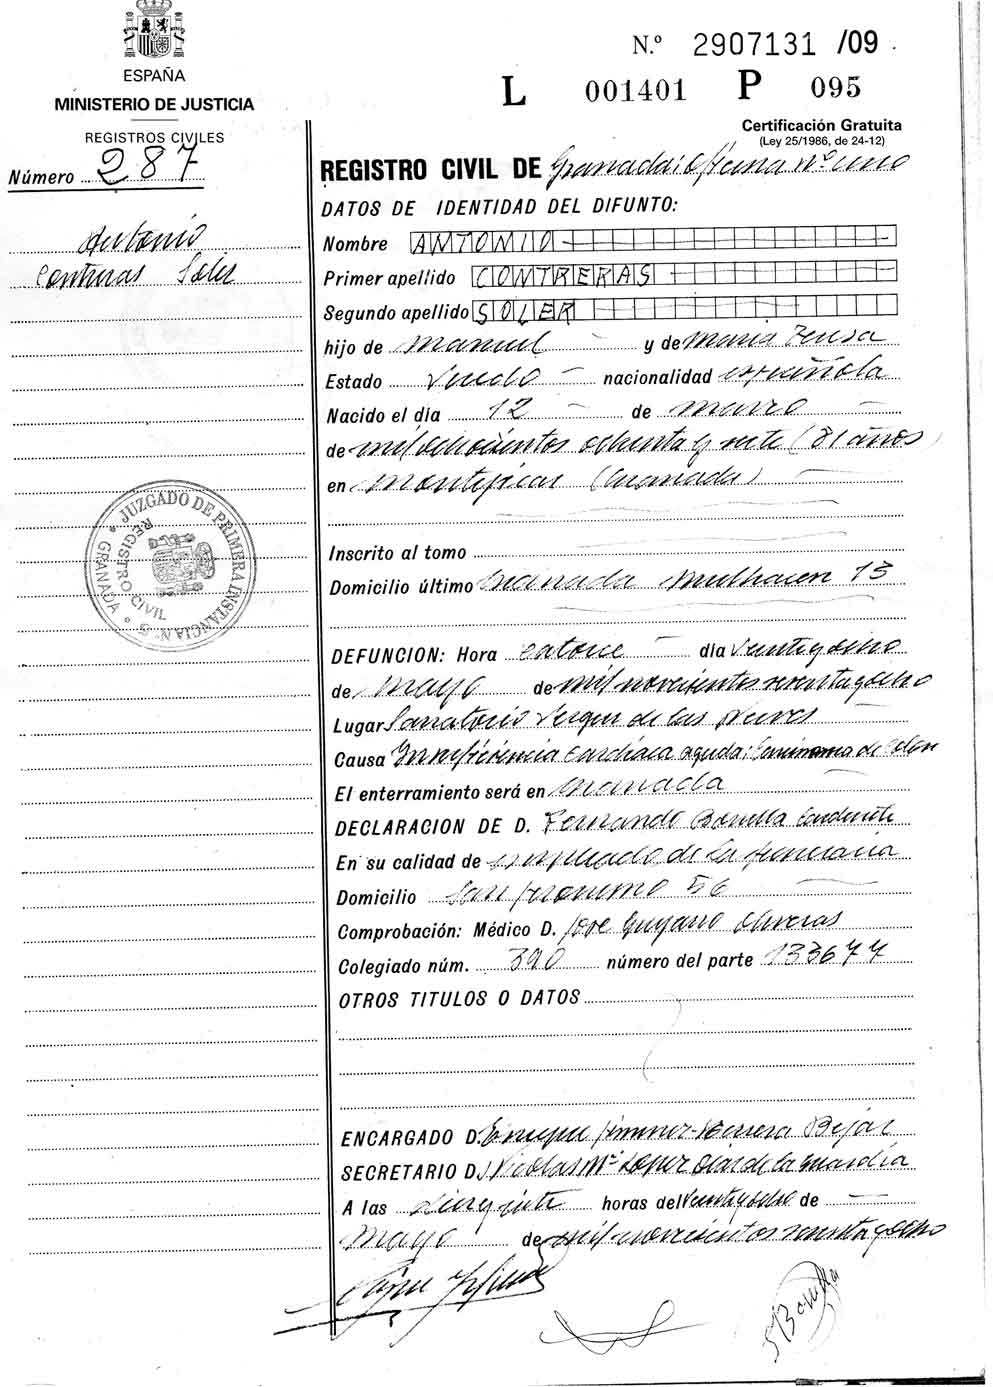 N.º 2907131 /09
ESPAÑA
MINISTERIO DE JUSTICIA
L 001401 P 095
REGISTROS CIVILES
Certificación Gratuita
(Ley 25/1986, de 24-12)
Número 287
REGISTRO CIVIL DE Granada: Oficina nº uno
DATOS DE IDENTIDAD DEL DIFUNTO:
Antonio
Contreras Soler
Nombre ANTONIO
Primer apellido CONTRERAS
Segundo apellido SOLER
hijo de Manuel y de Maria Teresa
Estado Viudo nacionalidad española
Nacido el día 12 de marzo
de mil ochocientos ochenta y siete (81 años)
en Montejicar (Granada)
Inscrito al tomo
Domicilio último Granada Mulhacen 13
JUZGADO DE PRIMERA INSTANCIA Nº 5
REGISTRO CIVIL
GRANADA
DEFUNCION: Hora catorce día veintiocho
de mayo de mil novecientos
Lugar Sanatorio Virgen de las Nieves
Causa Insuficiencia cardíaca aguda; Carcinoma de Colon
El enterramiento será en Granada
DECLARACION DE D. Fernando Bonilla
En su calidad de empleado de la funeraria
Domicilio San Jeronimo 56
Comprobación: Médico D. Jose
Colegiado núm. 390 número del parte 133677
OTROS TITULOS O DATOS
ENCARGADO D. Enrique Jimenez-Herrera Bejar
SECRETARIO D. Nicolas Mª Lopez Diaz de la Guardia
A las diez y siete horas del veintiocho de
mayo de mil novecientos
Bonilla